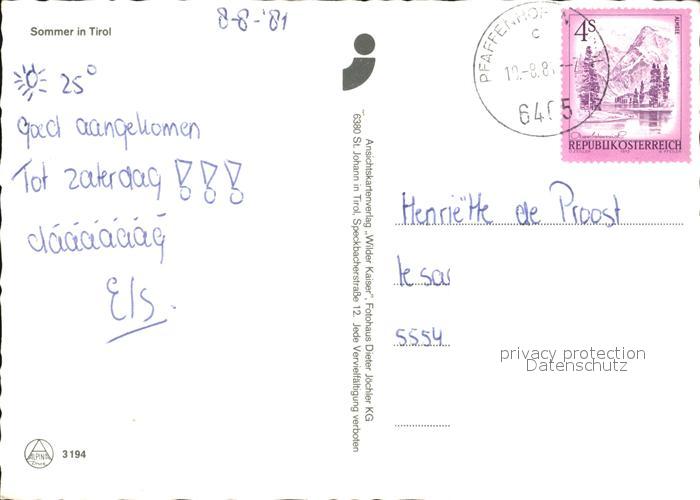 Sommer in Tirol
8-8-'81
25°
goed aangekomen
Tot zaterdag !!!
dááááááág
Els.
ALPINA
Druck
3194
Ansichtskartenverlag „Wilder Kaiser“, Fotohaus Dieter Jöchler KG
6380 St. Johann in Tirol, Speckbacherstraße 12. Jede Vervielfältigung verboten
PFAFFENHOFEN
c
6405
4S
ALMSEE
REPUBLIK ÖSTERREICH
Henriëtte de Proost
5554
privacy protection
Datenschutz